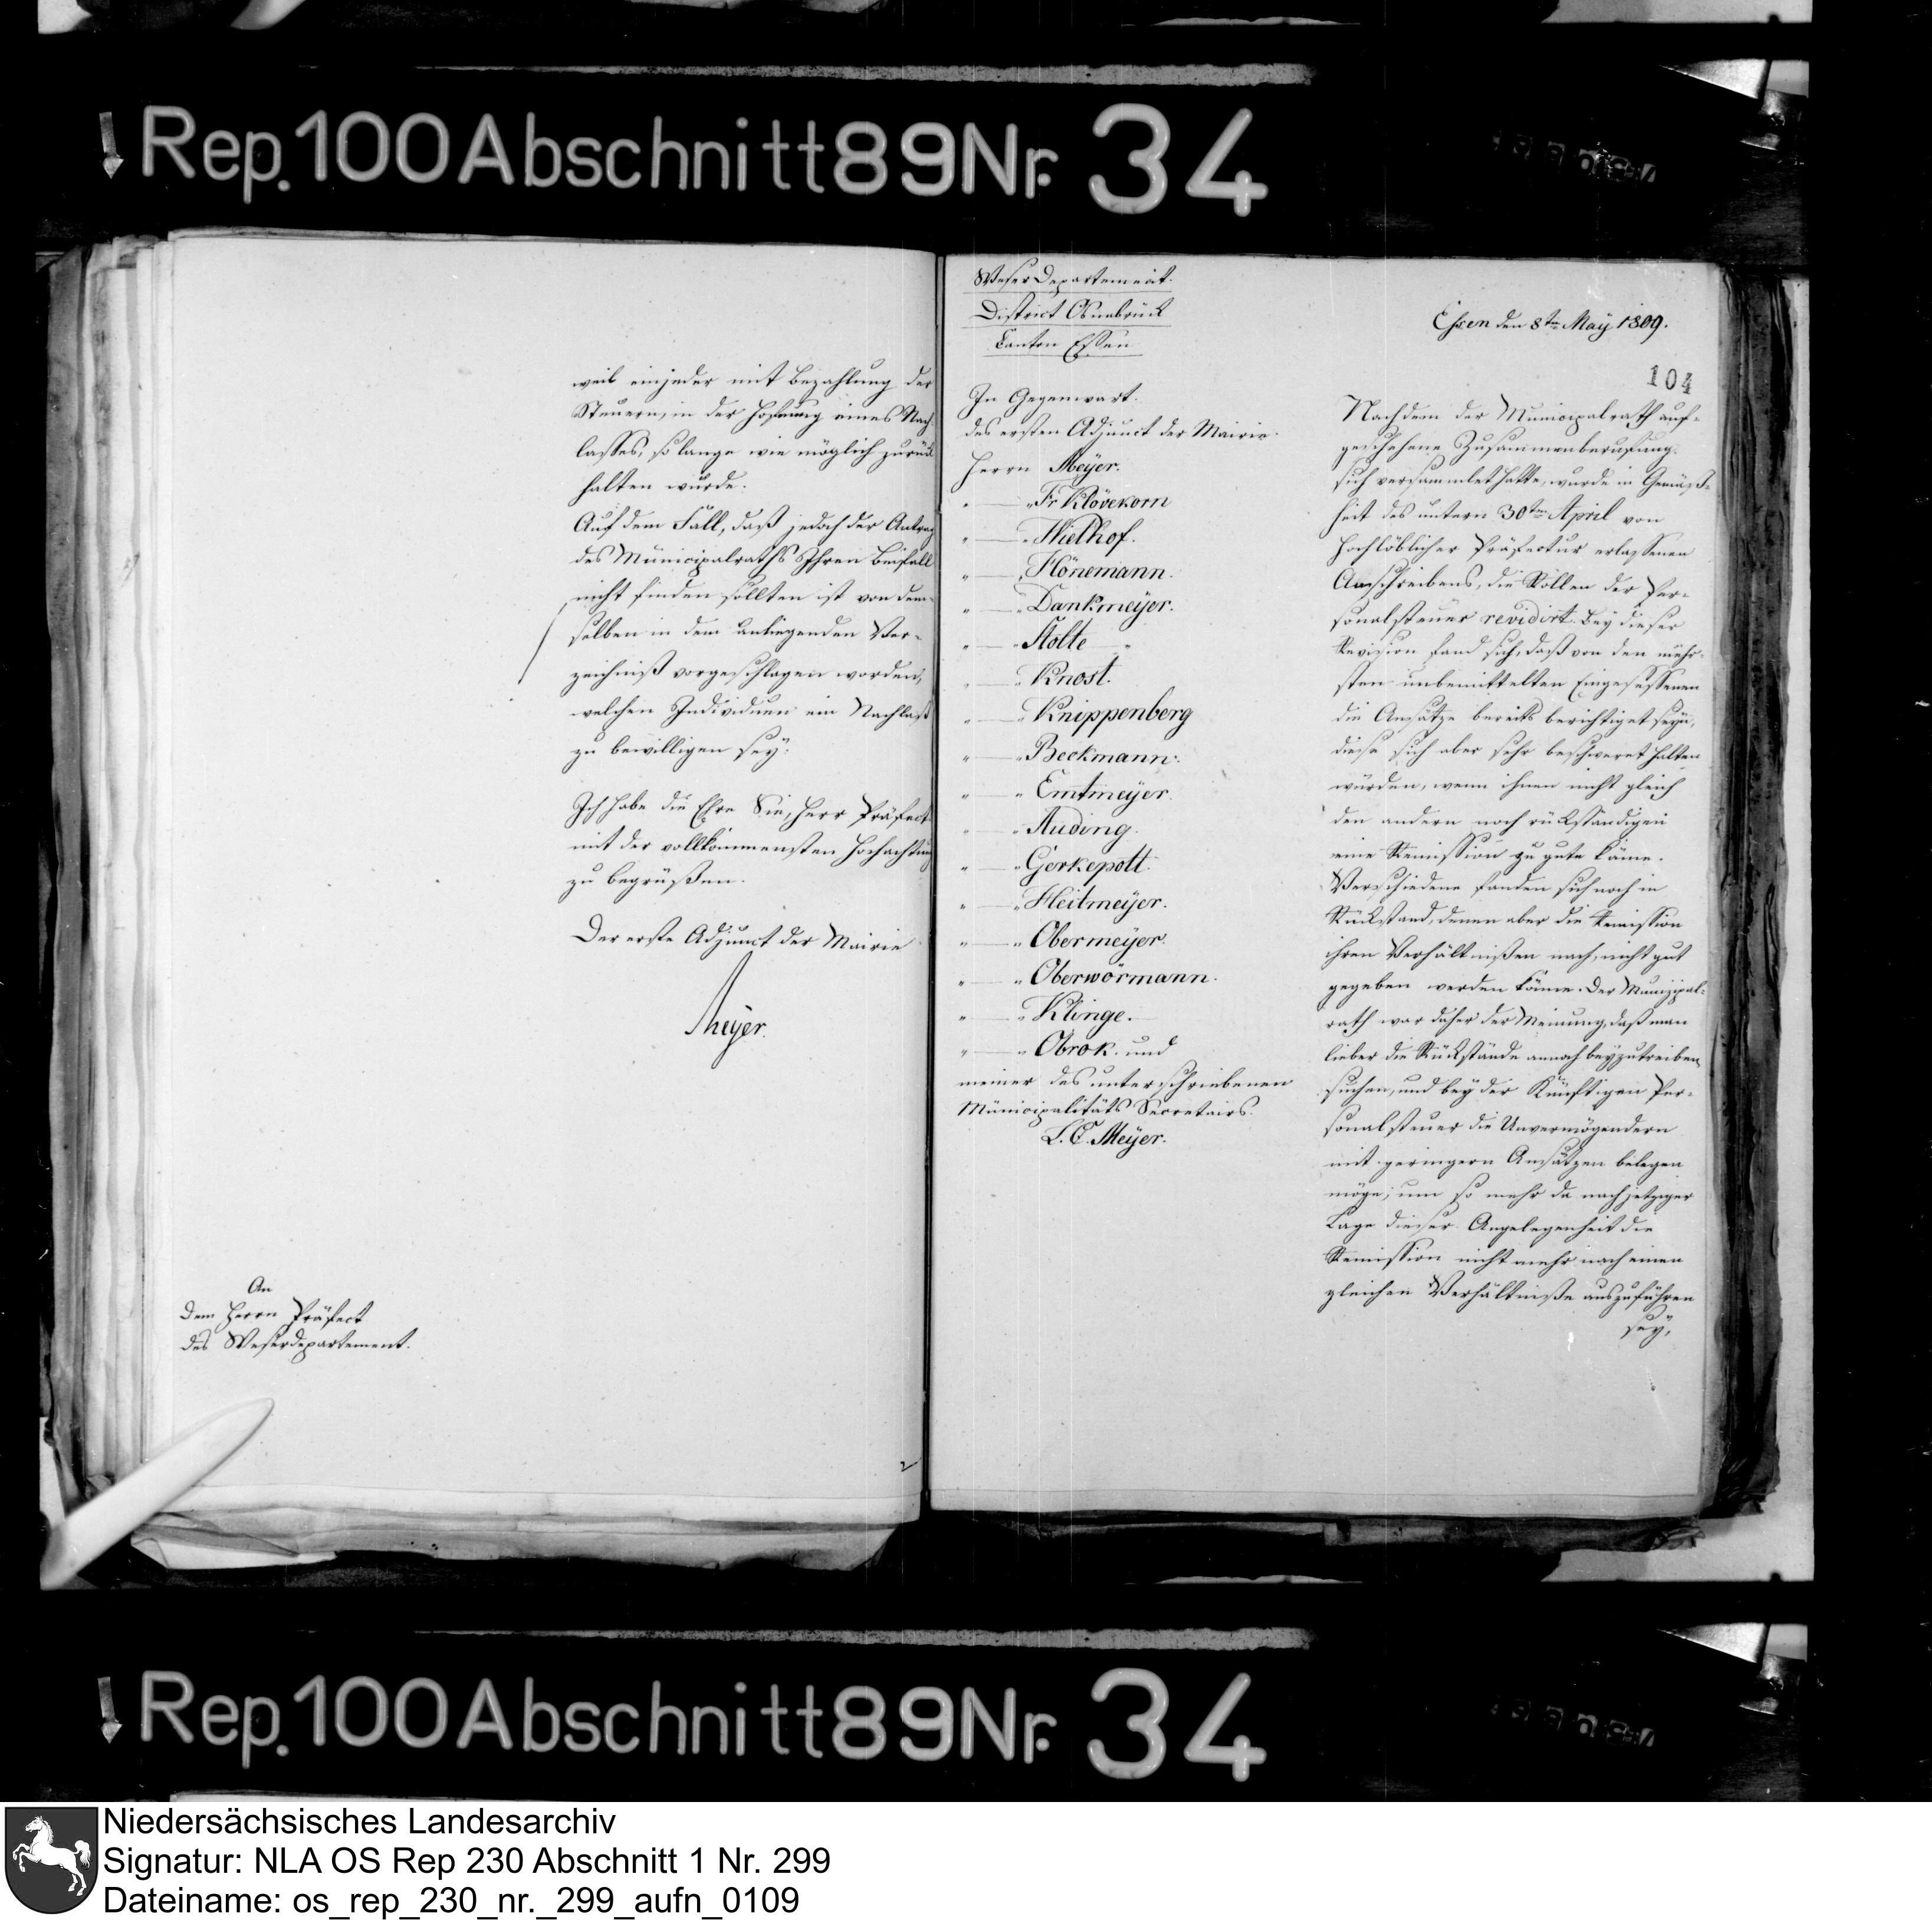 Rep. 100 Abschnitt 89 Nr. 34
weil einjeder mit Bezahlung der
Steuern, in der Hofnung eines Nach-
lasses, so lange wie möglich zurück
halten würde.
Auf dem Fall, daß jedoch der Antrag
des Municipalraths Ihren Beifall
nicht finden sollten ist von dem-
selben in dem anliegenden Ver-
zeichniß vorgeschlagen worden,
welchen Individuen ein Nachlaß
zu bewilligen sey.
Ich habe die Ehre Sie, Herr Präfect
mit der vollkommensten Hochachtung
zu begrüßen.
Der erste Adjunct der Mairie
Meyer.
An
dem Herrn Präfect
des Weserdepartement.
Weser Departement.
District Osnabrück
Canton Essen
Essen den 8ten May 1809.
104
In Gegenwart.
des ersten Adjunct der Mairie.
Herrn Meÿer.
" — " Fr Klövekorn
" — " Wielhof.
" — " Hönemann.
" — " Dankmeÿer.
" — " Nolte "
" — " Knost.
" — " Knippenberg
" — " Beckmann.
" — " Emtmeÿer.
" — " Auding.
" — " Gerkepott.
" — " Heitmeÿer.
" — " Obermeÿer.
" — " Oberwörmann.
" — " Klinge.
" — " Obrok. und
meiner des unterschriebenen
Municipalitäts Secretairs.
L. C. Meÿer.
Nachdem der Municipalrath auf-
geschehene Zusammenberufung
sich versammlet hatte, wurde in Gemäß-
heit des untern 30ten April von
Hochlöblicher Präfectur erlassenen
Anschreibens, die Rollen der Per-
sonalsteuer revidirt. Bey dieser
Revision fand sich, daß von den mehr-
sten unbemittelten Eingesessenen
die Ansätze bereits berichtiget seyn,
diese sich aber sehr beschweret halten
würden, wenn ihnen nicht gleich
den andern noch rückständigen
eine Remission zu gute käme.
Verschiedene fanden sich noch in
Rückstand, denen aber die Remission
ihren Verhältnißen nach, nicht gut
gegeben werden käme. Der Munizipal-
rath war daher der Meinung, daß man
lieber die Rückstände annoch beyzutreiben
suchen, und bey der Künftigen Per-
sonalsteuer die Unvermögendern
mit geringern Ansätzen belegen
möge; um so mehr da nach jetziger
Lage dieser Angelegenheit die
Remission nicht mehr nach einen
gleichen Verhältniße auszuführen
sey,
Rep. 100 Abschnitt 89 Nr. 34
Niedersächsisches Landesarchiv
Signatur: NLA OS Rep 230 Abschnitt 1 Nr. 299
Dateiname: os_rep_230_nr._299_aufn_0109